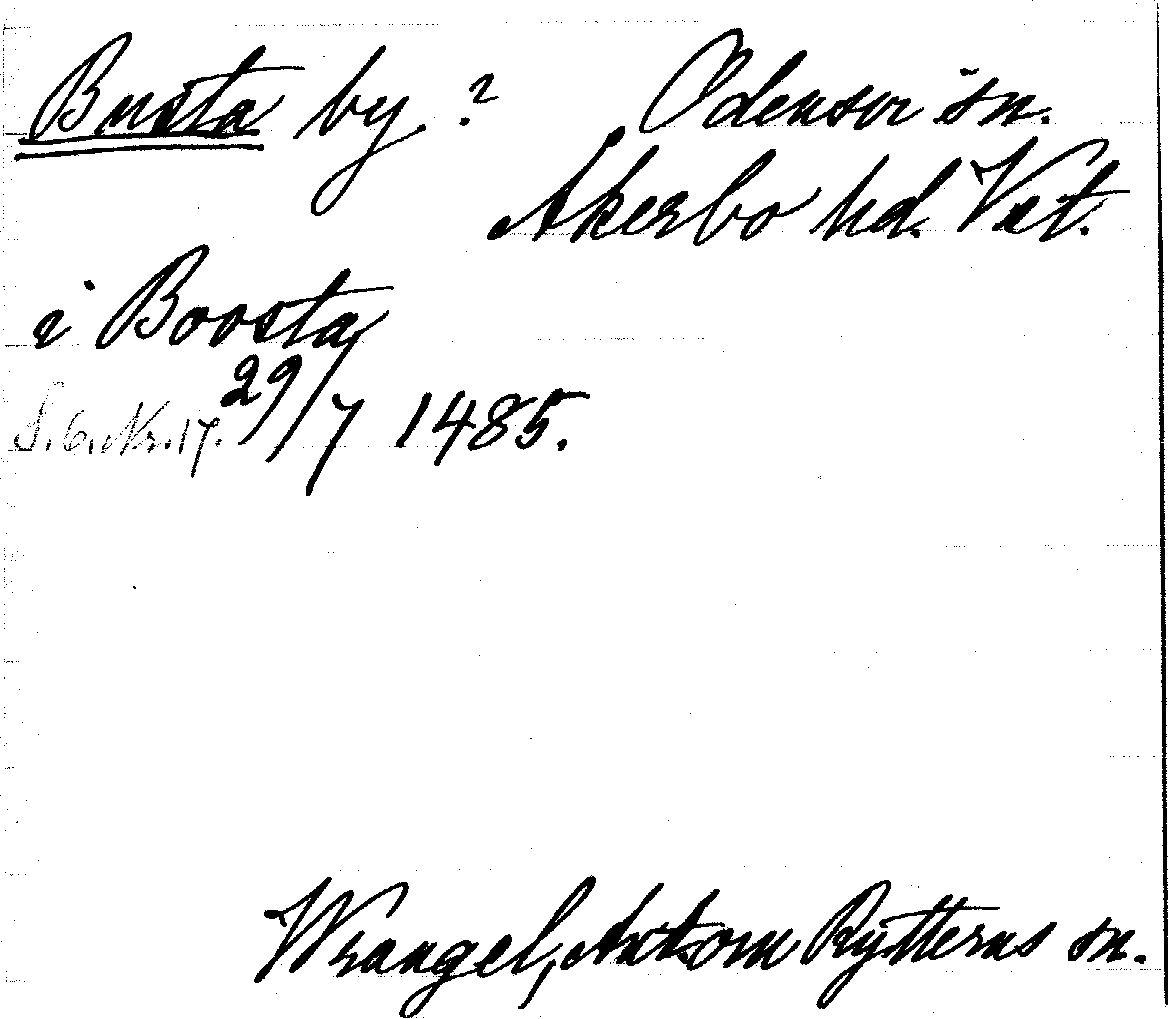 Busta by. ? Odensvi sn.
Åkerbo hd. Vstm.
i Boosta
S. 6. Nr. 17. 29/7 1485.
Wrangel, Ant. om Rytterns sn.